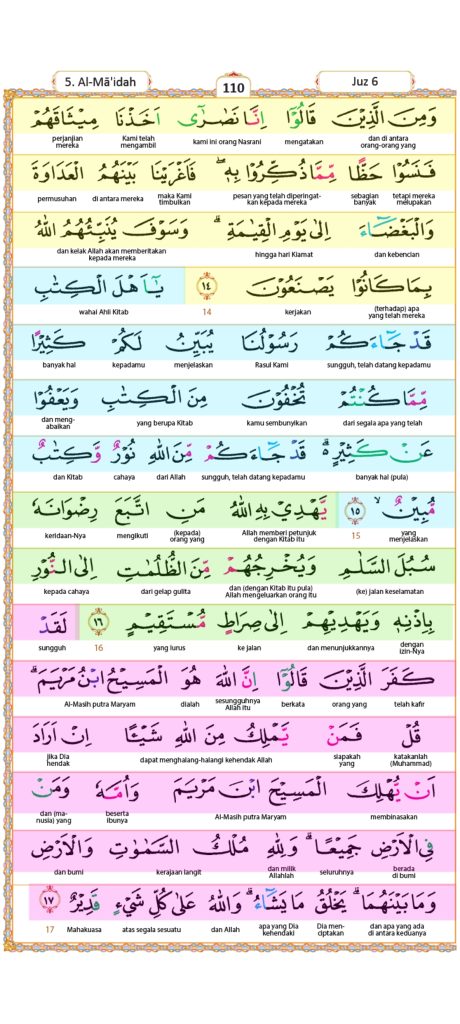 5. Al-Mā'idah
110
Juz 6
وَمِنَ الَّذِيْنَ قَالُوْٓا اِنَّا نَصٰرٰٓى اَخَذْنَا مِيْثَاقَهُمْ
dan di antara orang-orang yang mengatakan kami ini orang Nasrani Kami telah mengambil perjanjian mereka
فَنَسُوْا حَظًّا مِّمَّا ذُكِّرُوْا بِهٖۖ فَاَغْرَيْنَا بَيْنَهُمُ الْعَدَاوَةَ
tetapi mereka melupakan sebagian banyak pesan yang telah diperingatkan kepada mereka maka Kami timbulkan di antara mereka permusuhan
وَالْبَغْضَاۤءَ اِلٰى يَوْمِ الْقِيٰمَةِۗ وَسَوْفَ يُنَبِّئُهُمُ اللّٰهُ
dan kebencian hingga hari Kiamat dan kelak Allah akan memberitakan kepada mereka
بِمَا كَانُوْا يَصْنَعُوْنَ ١٤ يٰٓاَهْلَ الْكِتٰبِ
(terhadap) apa yang telah mereka kerjakan 14 wahai Ahli Kitab
قَدْ جَاۤءَكُمْ رَسُوْلُنَا يُبَيِّنُ لَكُمْ كَثِيْرًا
sungguh, telah datang kepadamu Rasul Kami menjelaskan kepadamu banyak hal
مِّمَّا كُنْتُمْ تُخْفُوْنَ مِنَ الْكِتٰبِ وَيَعْفُوْا
dari segala apa yang telah kamu sembunyikan yang berupa Kitab dan mengabaikan
عَنْ كَثِيْرٍەۗ قَدْ جَاۤءَكُمْ مِّنَ اللّٰهِ نُوْرٌ وَّكِتٰبٌ
banyak hal (pula) sungguh, telah datang kepadamu dari Allah cahaya dan Kitab
مُّبِيْنٌۙ ١٥ يَّهْدِيْ بِهِ اللّٰهُ مَنِ اتَّبَعَ رِضْوَانَهٗ
yang menjelaskan 15 Allah memberi petunjuk dengan Kitab itu (kepada) orang yang mengikuti keridaan-Nya
سُبُلَ السَّلٰمِ وَيُخْرِجُهُمْ مِّنَ الظُّلُمٰتِ اِلَى النُّوْرِ
(ke) jalan keselamatan dan (dengan Kitab itu pula) Allah mengeluarkan orang itu dari gelap gulita kepada cahaya
بِاِذْنِهٖ وَيَهْدِيْهِمْ اِلٰى صِرَاطٍ مُّسْتَقِيْمٍ ١٦ لَقَدْ
dengan Izin-Nya dan menunjukkannya ke jalan yang lurus 16 sungguh
كَفَرَ الَّذِيْنَ قَالُوْٓا اِنَّ اللّٰهَ هُوَ الْمَسِيْحُ ابْنُ مَرْيَمَۗ
telah kafir orang yang berkata sesungguhnya Allah itu dialah Al-Masih putra Maryam
قُلْ فَمَنْ يَّمْلِكُ مِنَ اللّٰهِ شَيْـًٔا اِنْ اَرَادَ
katakanlah (Muhammad) siapakah yang dapat menghalang-halangi kehendak Allah jika Dia hendak
اَنْ يُّهْلِكَ الْمَسِيْحَ ابْنَ مَرْيَمَ وَاُمَّهٗ وَمَنْ
membinasakan Al-Masih putra Maryam beserta ibunya dan (manusia) yang
فِى الْاَرْضِ جَمِيْعًاۗ وَلِلّٰهِ مُلْكُ السَّمٰوٰتِ وَالْاَرْضِ
berada di bumi seluruhnya dan milik Allahlah kerajaan langit dan bumi
وَمَا بَيْنَهُمَاۗ يَخْلُقُ مَا يَشَاۤءُۗ وَاللّٰهُ عَلٰى كُلِّ شَيْءٍ قَدِيْرٌ ١٧
dan apa yang ada di antara keduanya Dia menciptakan apa yang Dia kehendaki dan Allah atas segala sesuatu Mahakuasa 17